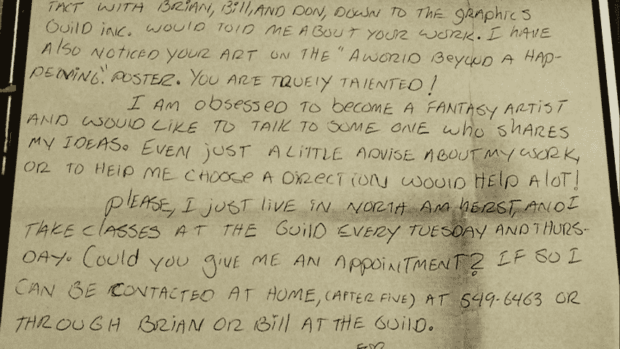 TACT WITH BRIAN, BILL, AND DON, DOWN TO THE GRAPHICS
GUILD INC. WOULD TOLD ME ABOUT YOUR WORK. I HAVE
ALSO NOTICED YOUR ART ON THE "A WORLD BEYOND A HAP-
PENING." POSTER. YOU ARE TRUELY TALENTED!
I AM OBSESSED TO BECOME A FANTASY ARTIST
AND WOULD LIKE TO TALK TO SOME ONE WHO SHARES
MY IDEAS. EVEN JUST A LITTLE ADVISE ABOUT MY WORK,
OR TO HELP ME CHOOSE A DIRECTION WOULD HELP ALOT!
PLEASE, I JUST LIVE IN NORTH AMHERST, AND I
TAKE CLASSES AT THE GUILD EVERY TUESDAY AND THURS-
DAY. COULD YOU GIVE ME AN APPOINTMENT? IF SO I
CAN BE CONTACTED AT HOME, (AFTER FIVE) AT 549-6463 OR
THROUGH BRIAN OR BILL AT THE GUILD.